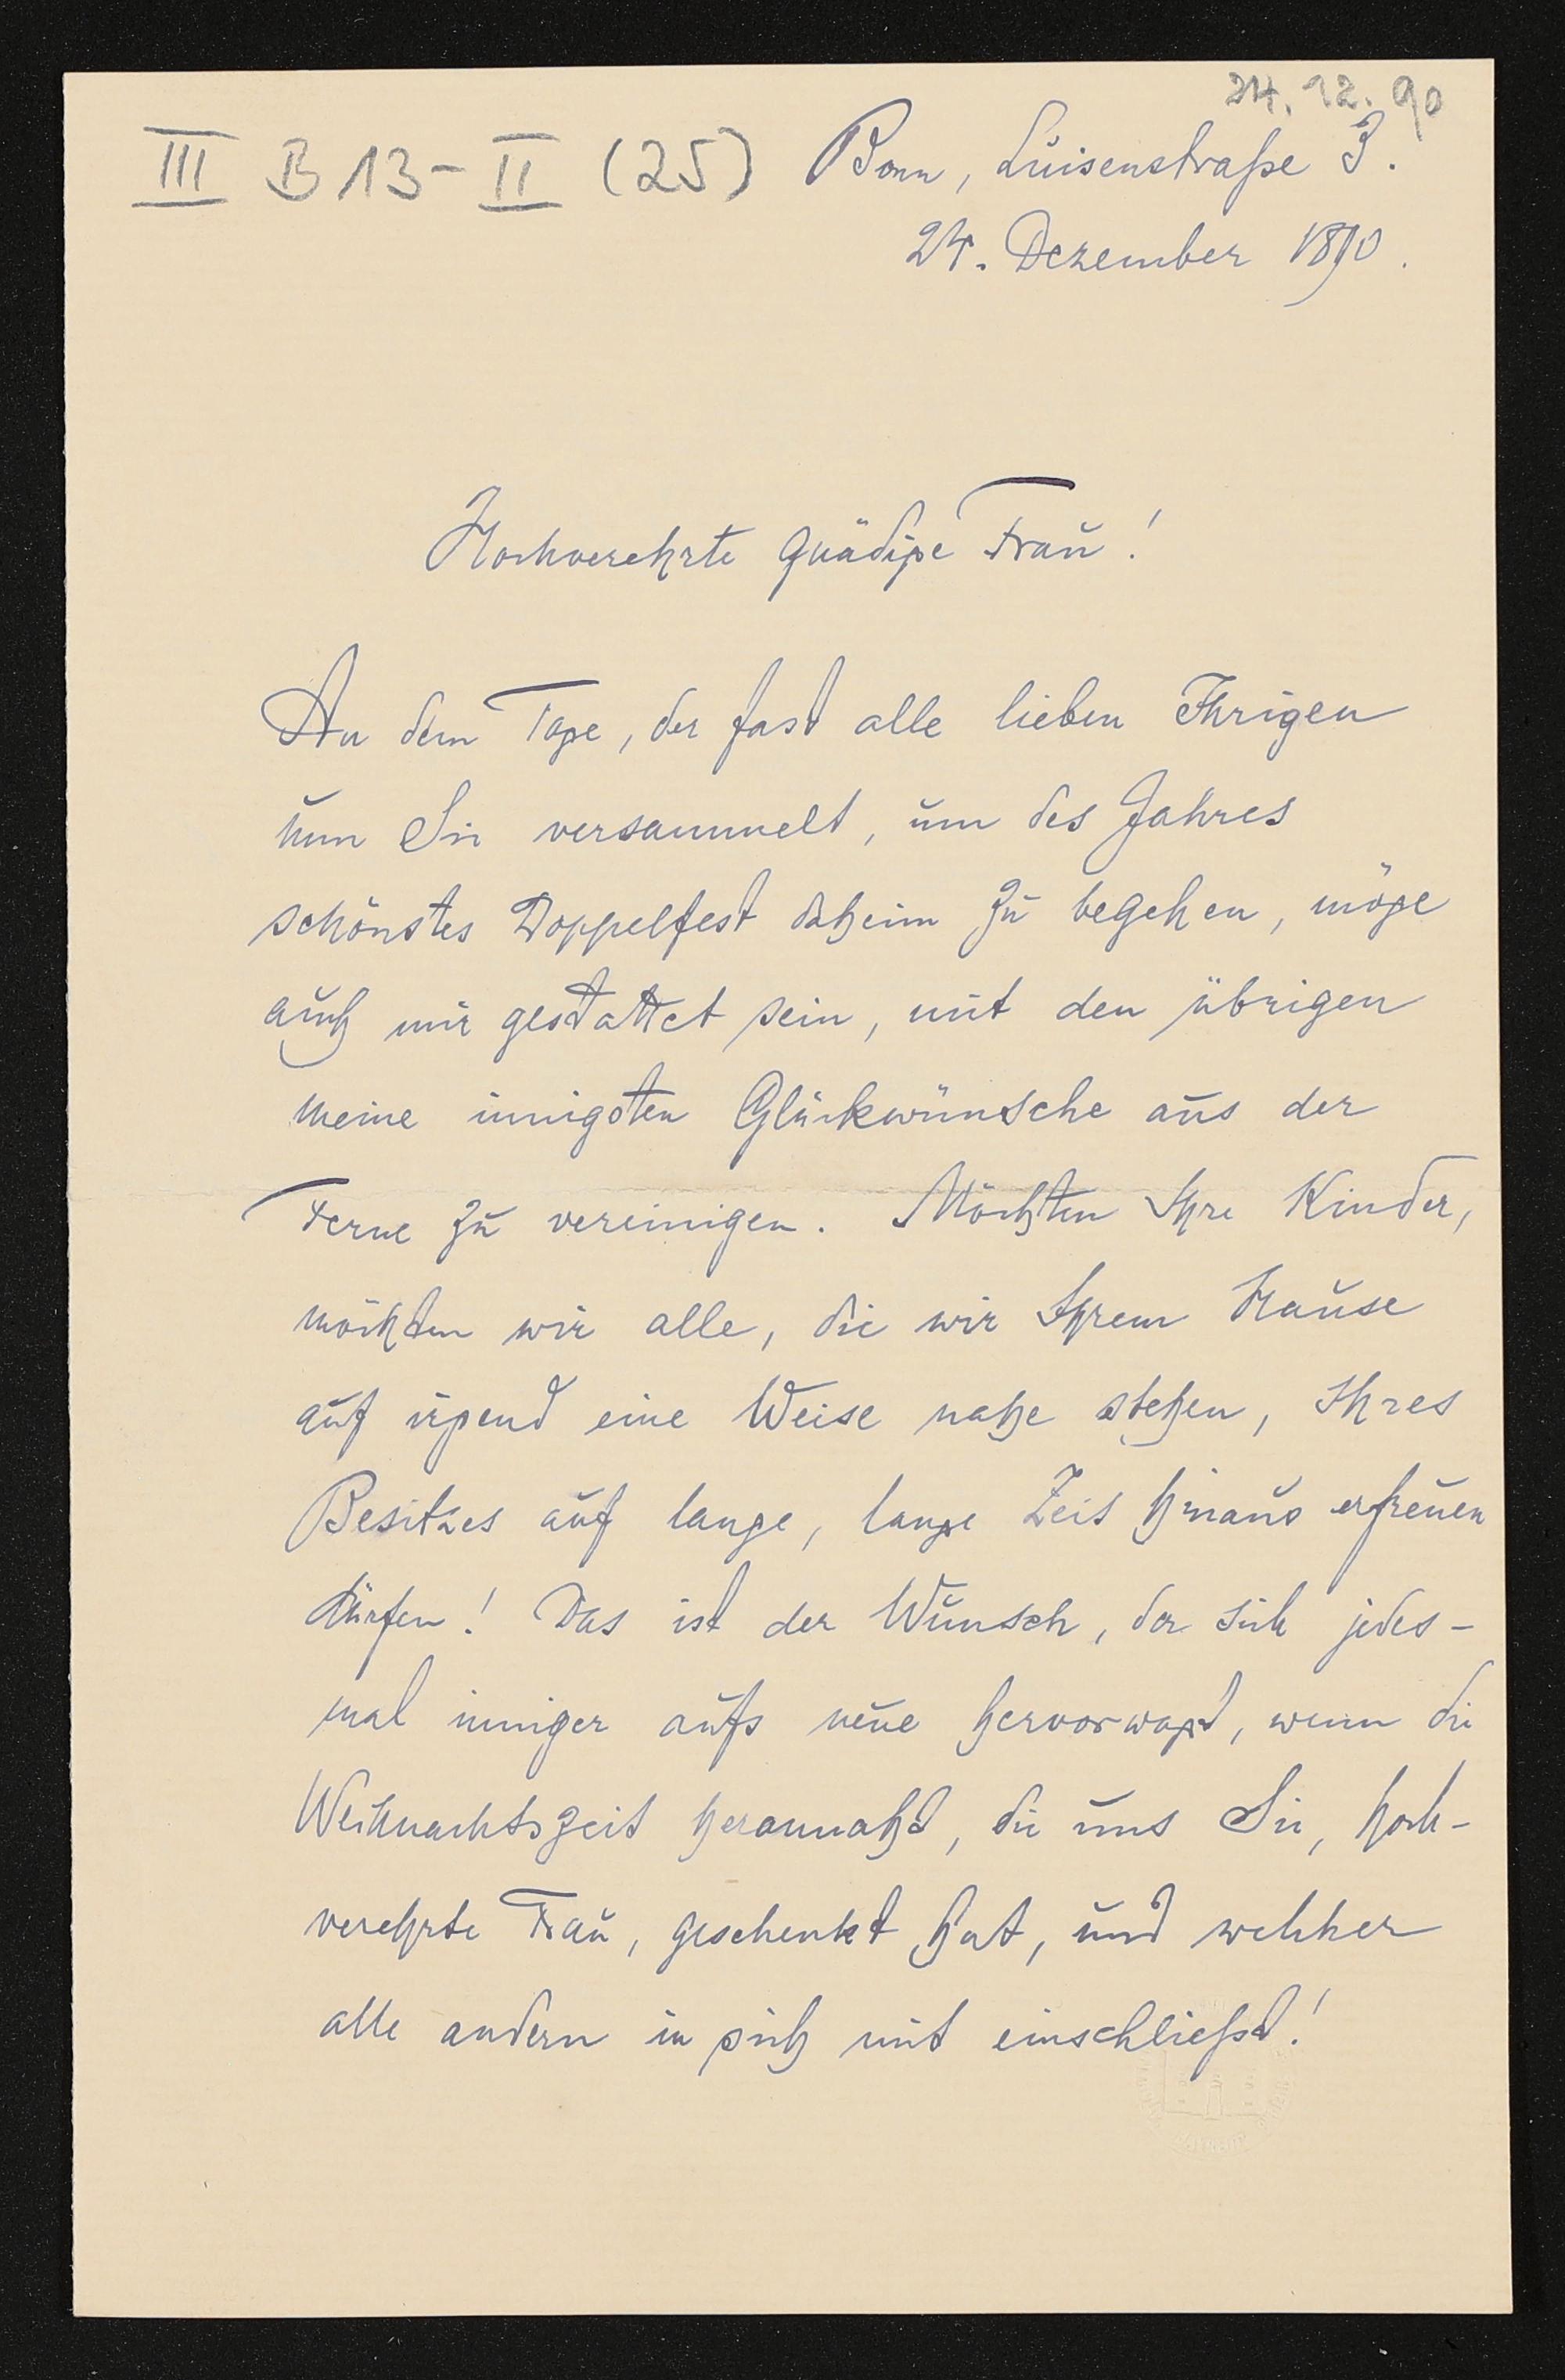 24. 12. 90
III B 13 - II (25)
Bonn, Luisenstraße 3.
24. Dezember 1890.
Hochverehrte gnädige Frau!
An dem Tage, der fast alle lieben Ihrigen
um Sie versammelt, um des Jahres
schönstes Doppelfest daheim zu begehen, möge
auch mir gestattet sein, mit den übrigen
meine innigsten Glückwünsche aus der
Ferne zu vereinigen. Möchten Ihre Kinder,
möchten wir alle, die wir Ihrem Hause
auf irgend eine Weise nahe stehen, Ihres
Besitzes auf lange, lange Zeit hinaus erfreuen
dürfen! Das ist der Wunsch, der sich jedes-
mal inniger aufs neue hervorwagt, wenn die
Weihnachtszeit herannaht, die uns Sie, hoch-
verehrte Frau, geschenkt hat, und welcher
alle andern in sich mit einschließt!